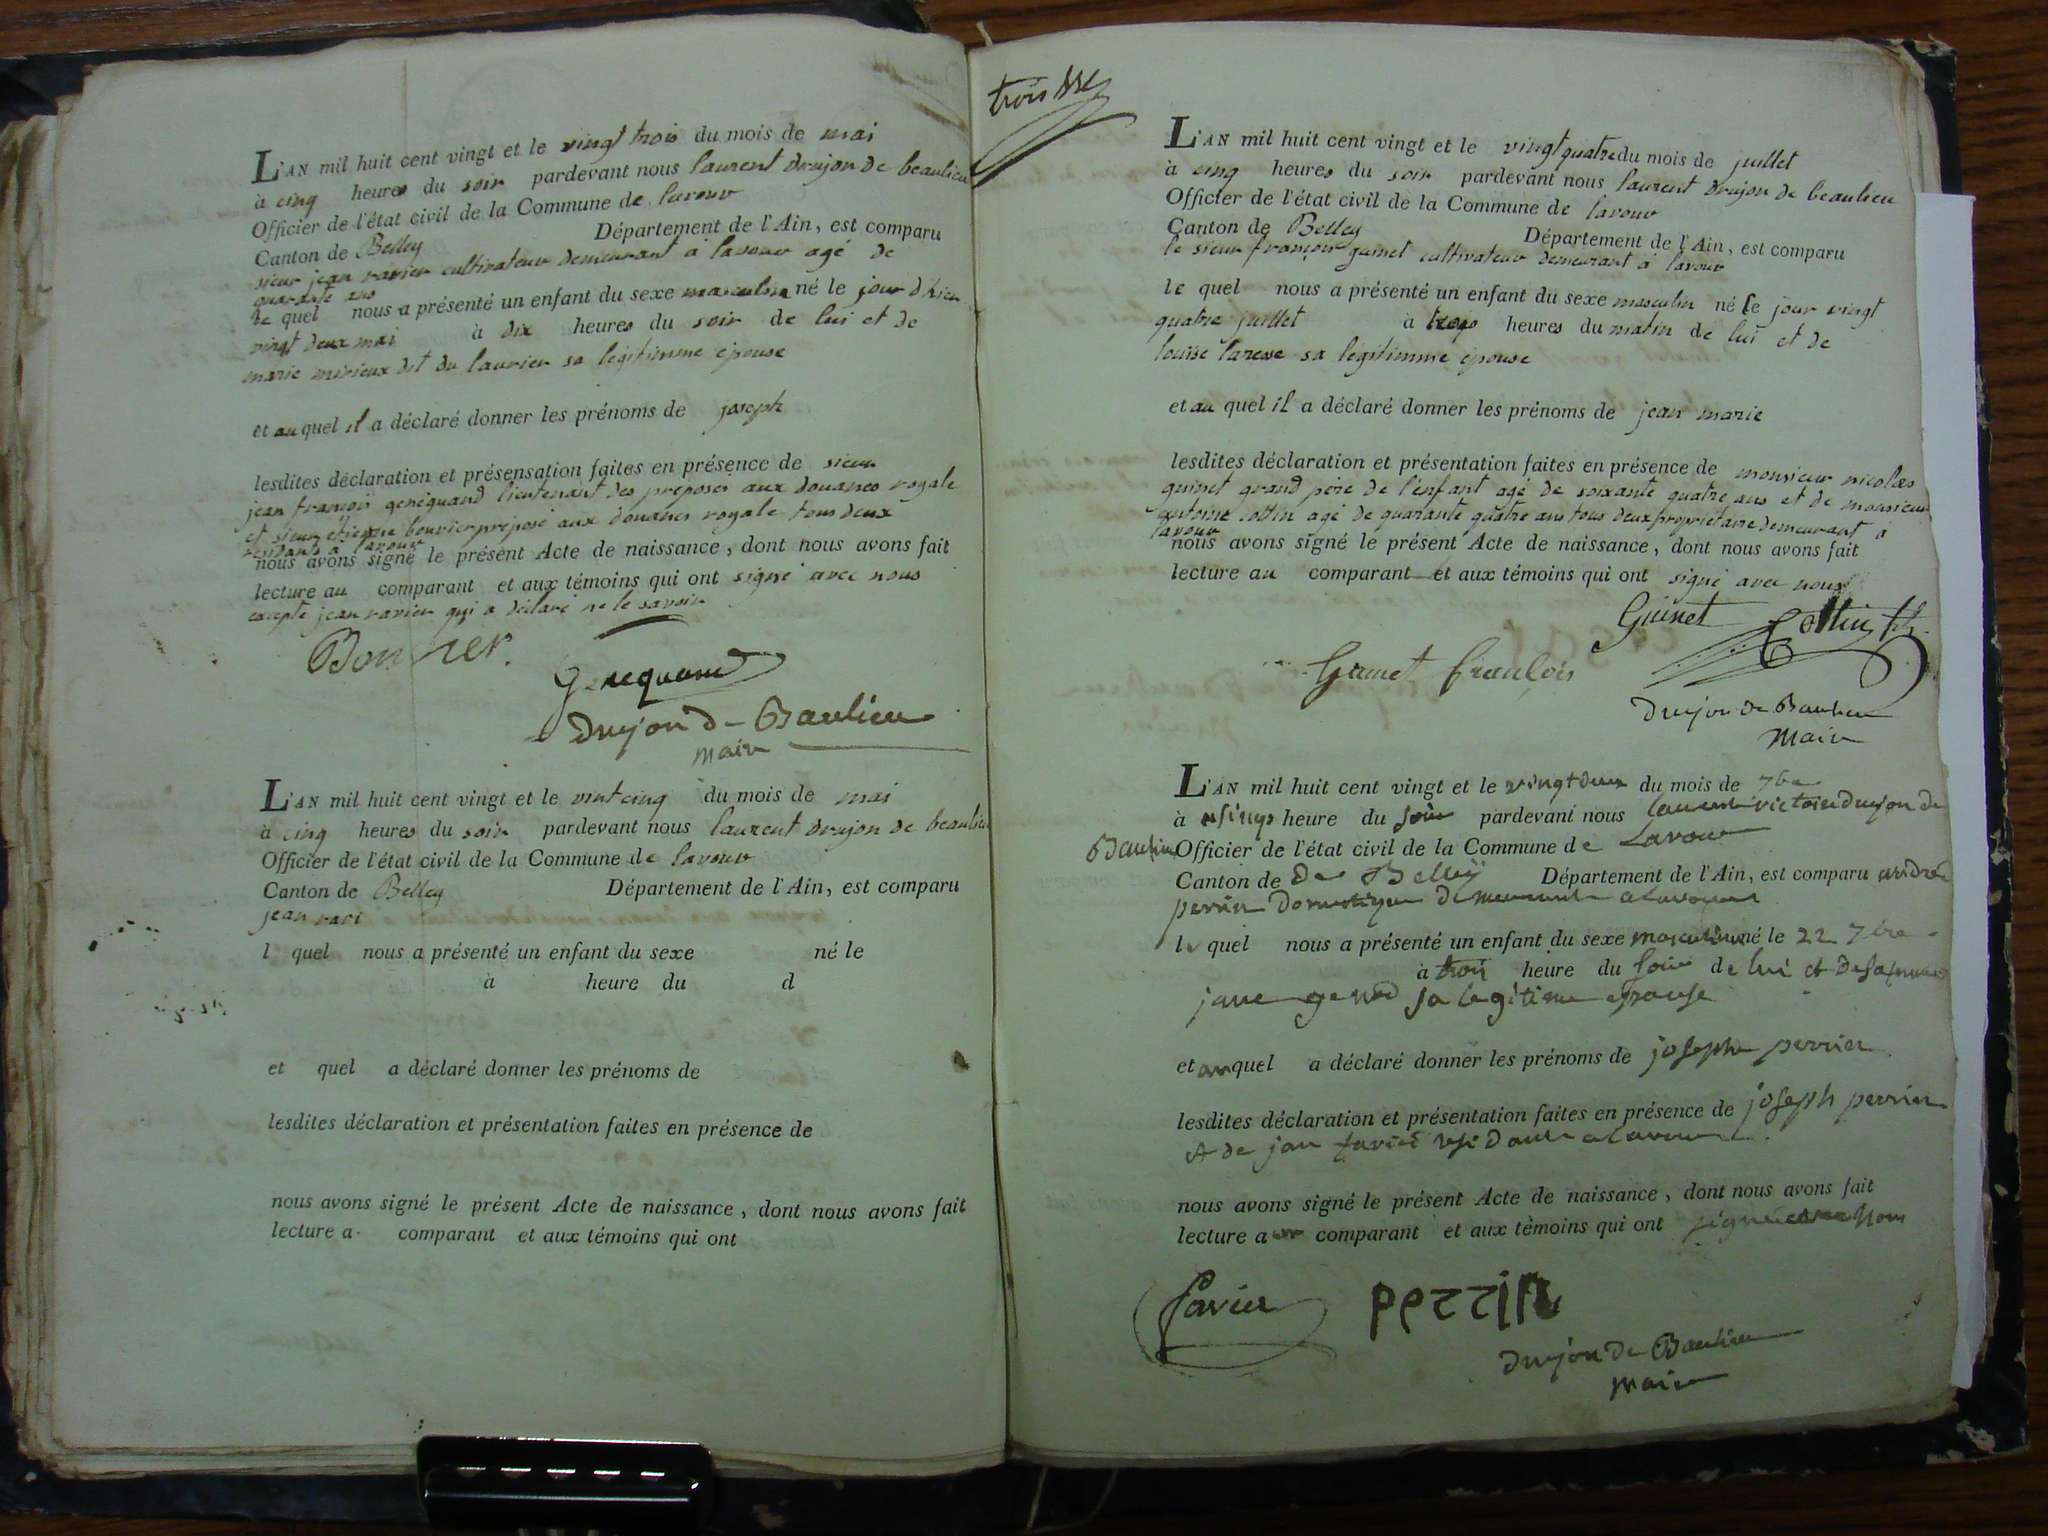 L'AN mil huit cent vingt et le vingt trois du mois de mai
à cinq heures du soir pardevant nous laurent drujon de beaulieu
Officier de l'état civil de la Commune de lavour
Canton de Belley Département de l'Ain, est comparu
sieur jean ravier cultivateur demeurant à lavour agé de
quarante ans
le quel nous a présenté un enfant du sexe masculin né le jour d'hier
vingt deux mai à dix heures du soir de lui et de
marie mirieux dit du laurier sa légitimme épouse
et au quel il a déclaré donner les prénoms de joseph
lesdites déclaration et présensation faites en présence de sieur
jean françois genéquand lieutenant des preposés aux douanes royale
et sieur etienne bouvier préposé aux douanes royale tous deux
résidants à lavour
nous avons signé le présent Acte de naissance, dont nous avons fait
lecture au comparant et aux témoins qui ont signé avec nous
excepté jean ravier qui a déclaré ne le savoir
Bouvier.
Genequand
Drujon de Baulieu
Maire
L'AN mil huit cent vingt et le vint cinq du mois de mai
à cinq heures du soir pardevant nous laurent drujon de beaulieu
Officier de l'état civil de la Commune de lavour
Canton de Belley Département de l'Ain, est comparu
jean ravi
l quel nous a présenté un enfant du sexe né le
à heure du d
et quel a déclaré donner les prénoms de
lesdites déclaration et présentation faites en présence de
nous avons signé le présent Acte de naissance, dont nous avons fait
lecture a comparant et aux témoins qui ont
trois
L'AN mil huit cent vingt et le vingt quatre du mois de juillet
à cinq heures du soir pardevant nous laurent drujon de beaulieu
Officier de l'état civil de la Commune de lavour
Canton de Belley Département de l'Ain, est comparu
le sieur françois guinet cultivateur demeurant à lavour
le quel nous a présenté un enfant du sexe masculin né le jour vingt
quatre juillet à trois heures du matin de lui et de
louise sa légitimme épouse
et au quel il a déclaré donner les prénoms de jean marie
lesdites déclaration et présentation faites en présence de monsieur nicolas
guinet grand père de l'enfant agé de soixante quatre ans et de monsieur
antoine cottin agé de quarante quatre ans tous deux propriétaire demeurant à
lavour
nous avons signé le présent Acte de naissance, dont nous avons fait
lecture au comparant et aux témoins qui ont signé avec nous
Guinet Cottin
Guinet françois
Drujon de Baulieu
Maire
L'AN mil huit cent vingt et le vingt deux du mois de 7bre
à heure du soir pardevant nous laurent victoire drujon de
Baulieu Officier de l'état civil de la Commune de Lavour
Canton de De Belley Département de l'Ain, est comparu andré
perrin domestique demeurant a Lavour
le quel nous a présenté un enfant du sexe masculin né le 22 7bre
à trois heure du soir de lui et de sa femme
sa legitime epouse
et au quel a déclaré donner les prénoms de joseph perrin
lesdites déclaration et présentation faites en présence de joseph perrin
et de jean résidant a Lavour
nous avons signé le présent Acte de naissance, dont nous avons fait
lecture au comparant et aux témoins qui ont signé avec nous
perrin
Drujon de Baulieu
Maire